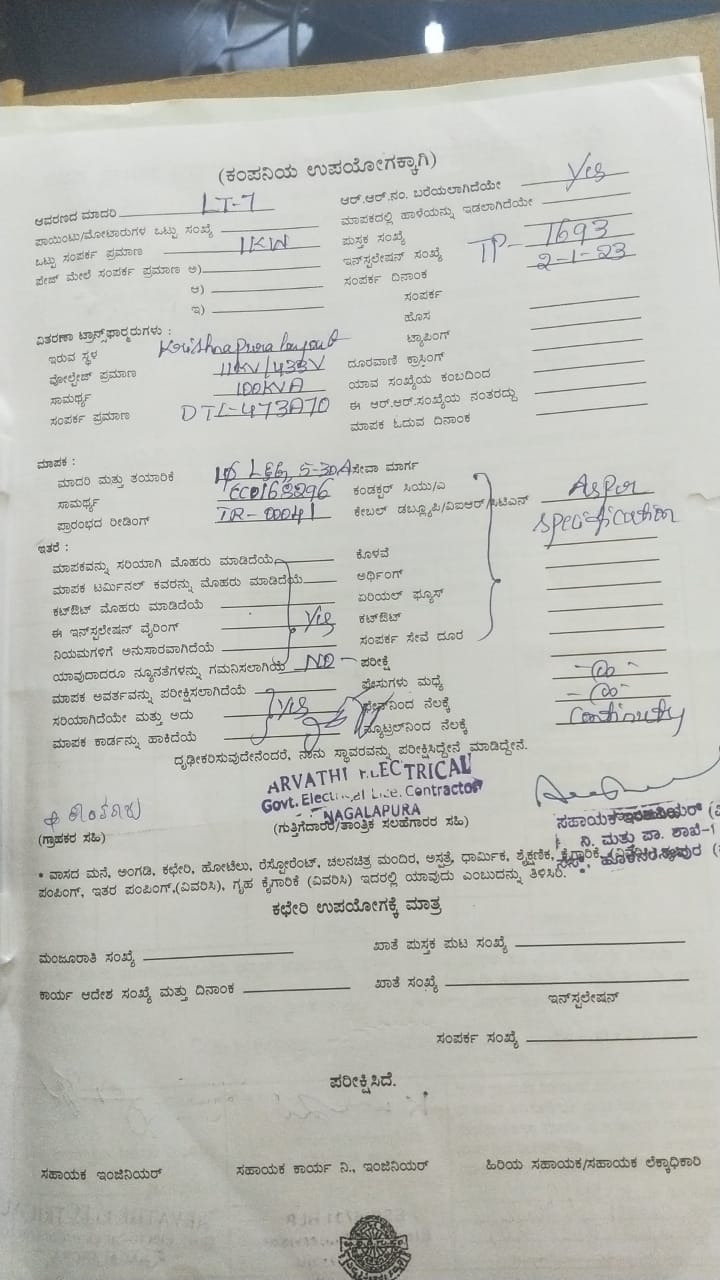 (ಕಂಪನಿಯ ಉಪಯೋಗಕ್ಕಾಗಿ)
ಆವರಣದ ಮಾದರಿ LT-7
ಪಾಯಿಂಟು/ಮೋಟಾರುಗಳ ಒಟ್ಟು ಸಂಖ್ಯೆ
ಒಟ್ಟು ಸಂಪರ್ಕ ಪ್ರಮಾಣ 1KW
ಪೇಜ್ ಮೇಲೆ ಸಂಪರ್ಕ ಪ್ರಮಾಣ ಅ)
ಆ)
ಇ)
ಆರ್.ಆರ್.ನಂ. ಬರೆಯಲಾಗಿದೆಯೇ Yes
ಮಾಪಕದಲ್ಲಿ ಹಾಳೆಯನ್ನು ಇಡಲಾಗಿದೆಯೇ
ಪುಸ್ತಕ ಸಂಖ್ಯೆ
ಇನ್ಸ್‌ಲೇಷನ್ ಸಂಖ್ಯೆ TP- 1693
ಸಂಪರ್ಕ ದಿನಾಂಕ 2-1-23
ಸಂಪರ್ಕ
ಹೊಸ
ಟ್ಯಾಪಿಂಗ್
ದೂರವಾಣಿ ಕ್ರಾಸಿಂಗ್
ಯಾವ ಸಂಖ್ಯೆಯ ಕಂಬದಿಂದ
ಈ ಆರ್.ಆರ್.ಸಂಖ್ಯೆಯ ನಂತರದ್ದು
ಮಾಪಕ ಓದುವ ದಿನಾಂಕ
ವಿತರಣಾ ಟ್ರಾನ್ಸ್‌ಫಾರ್ಮರುಗಳು :
ಇರುವ ಸ್ಥಳ Krishnapura layout
ವೋಲ್ಟೇಜ್ ಪ್ರಮಾಣ 11KV/433V
ಸಾಮರ್ಥ್ಯ 100KVA
ಸಂಪರ್ಕ ಪ್ರಮಾಣ
ಮಾಪಕ :
ಮಾದರಿ ಮತ್ತು ತಯಾರಿಕೆ 5-30A
ಸಾಮರ್ಥ್ಯ
ಪ್ರಾರಂಭದ ರೀಡಿಂಗ್ IR- 00041
ಸೇವಾ ಮಾರ್ಗ
ಕಂಡಕ್ಟರ್ ಸಿಯು/ಎ As per
ಕೇಬಲ್ ಡಬ್ಲ್ಯೂಪಿ/ವಿಐಆರ್/ಸಿಟಿಎನ್ specification
ಇತರೆ :
ಮಾಪಕವನ್ನು ಸರಿಯಾಗಿ ಮೊಹರು ಮಾಡಿದೆಯೆ
ಮಾಪಕ ಟರ್ಮಿನಲ್ ಕವರನ್ನು ಮೊಹರು ಮಾಡಿದೆಯೆ
ಕಟ್‌ಔಟ್ ಮೊಹರು ಮಾಡಿದೆಯೆ
ಈ ಇನ್‌ಸ್ಟಲೇಷನ್ ವೈರಿಂಗ್ Yes
ನಿಯಮಗಳಿಗೆ ಅನುಸಾರವಾಗಿದೆಯೆ
ಯಾವುದಾದರೂ ನ್ಯೂನತೆಗಳನ್ನು ಗಮನಿಸಲಾಗಿಯೆ NO
ಮಾಪಕ ಅವರ್ತವನ್ನು ಪರೀಕ್ಷಿಸಲಾಗಿದೆಯೆ
ಸರಿಯಾಗಿದೆಯೇ ಮತ್ತು ಅದು Yes
ಮಾಪಕ ಕಾರ್ಡನ್ನು ಹಾಕಿದೆಯೆ
ಕೊಳವೆ
ಅರ್ಥಿಂಗ್
ಏರಿಯಲ್ ಫ್ಯೂಸ್
ಕಟ್‌ಔಟ್
ಸಂಪರ್ಕ ಸೇವೆ ದೂರ
ಪರೀಕ್ಷೆ
ಫೇಸುಗಳು ಮಧ್ಯೆ - ∞ -
ಫೇಸ್‌ನಿಂದ ನೆಲಕ್ಕೆ - ∞ -
ನ್ಯೂಟ್ರಲ್‌ನಿಂದ ನೆಲಕ್ಕೆ Continuty
ದೃಢೀಕರಿಸುವುದೇನೆಂದರೆ, ನಾನು ಸ್ಥಾವರವನ್ನು ಪರೀಕ್ಷಿಸಿದ್ದೇನೆ ಮಾಡಿದ್ದೇನೆ.
ARVATHI ELECTRICAL
Govt. Electrical Lice. Contractor
NAGALAPURA
(ಗ್ರಾಹಕರ ಸಹಿ)
(ಗುತ್ತಿಗೆದಾರರ/ತಾಂತ್ರಿಕ ಸಲಹೆಗಾರರ ಸಹಿ)
ಸಹಾಯಕ ಇಂಜಿನಿಯರ್ (ವಿ
ನಿ. ಮತ್ತು ಪಾ. ಶಾಖೆ-1
* ವಾಸದ ಮನೆ, ಅಂಗಡಿ, ಕಛೇರಿ, ಹೋಟೆಲು, ರೆಸ್ಟೋರೆಂಟ್, ಚಲನಚಿತ್ರ ಮಂದಿರ, ಆಸ್ಪತ್ರೆ, ಧಾರ್ಮಿಕ, ಶೈಕ್ಷಣಿಕ, ಕೈಗಾರಿಕೆ
ಪಂಪಿಂಗ್, ಇತರ ಪಂಪಿಂಗ್,(ವಿವರಿಸಿ), ಗೃಹ ಕೈಗಾರಿಕೆ (ವಿವರಿಸಿ) ಇದರಲ್ಲಿ ಯಾವುದು ಎಂಬುದನ್ನು ತಿಳಿಸಿರಿ.
ಕಛೇರಿ ಉಪಯೋಗಕ್ಕೆ ಮಾತ್ರ
ಮಂಜೂರಾತಿ ಸಂಖ್ಯೆ
ಖಾತೆ ಪುಸ್ತಕ ಪುಟ ಸಂಖ್ಯೆ
ಕಾರ್ಯ ಆದೇಶ ಸಂಖ್ಯೆ ಮತ್ತು ದಿನಾಂಕ
ಖಾತೆ ಸಂಖ್ಯೆ
ಇನ್‌ಸ್ಟಲೇಷನ್
ಸಂಪರ್ಕ ಸಂಖ್ಯೆ
ಪರೀಕ್ಷಿಸಿದೆ.
ಸಹಾಯಕ ಇಂಜಿನಿಯರ್
ಸಹಾಯಕ ಕಾರ್ಯ ನಿ., ಇಂಜಿನಿಯರ್
ಹಿರಿಯ ಸಹಾಯಕ/ಸಹಾಯಕ ಲೆಕ್ಕಾಧಿಕಾರಿ